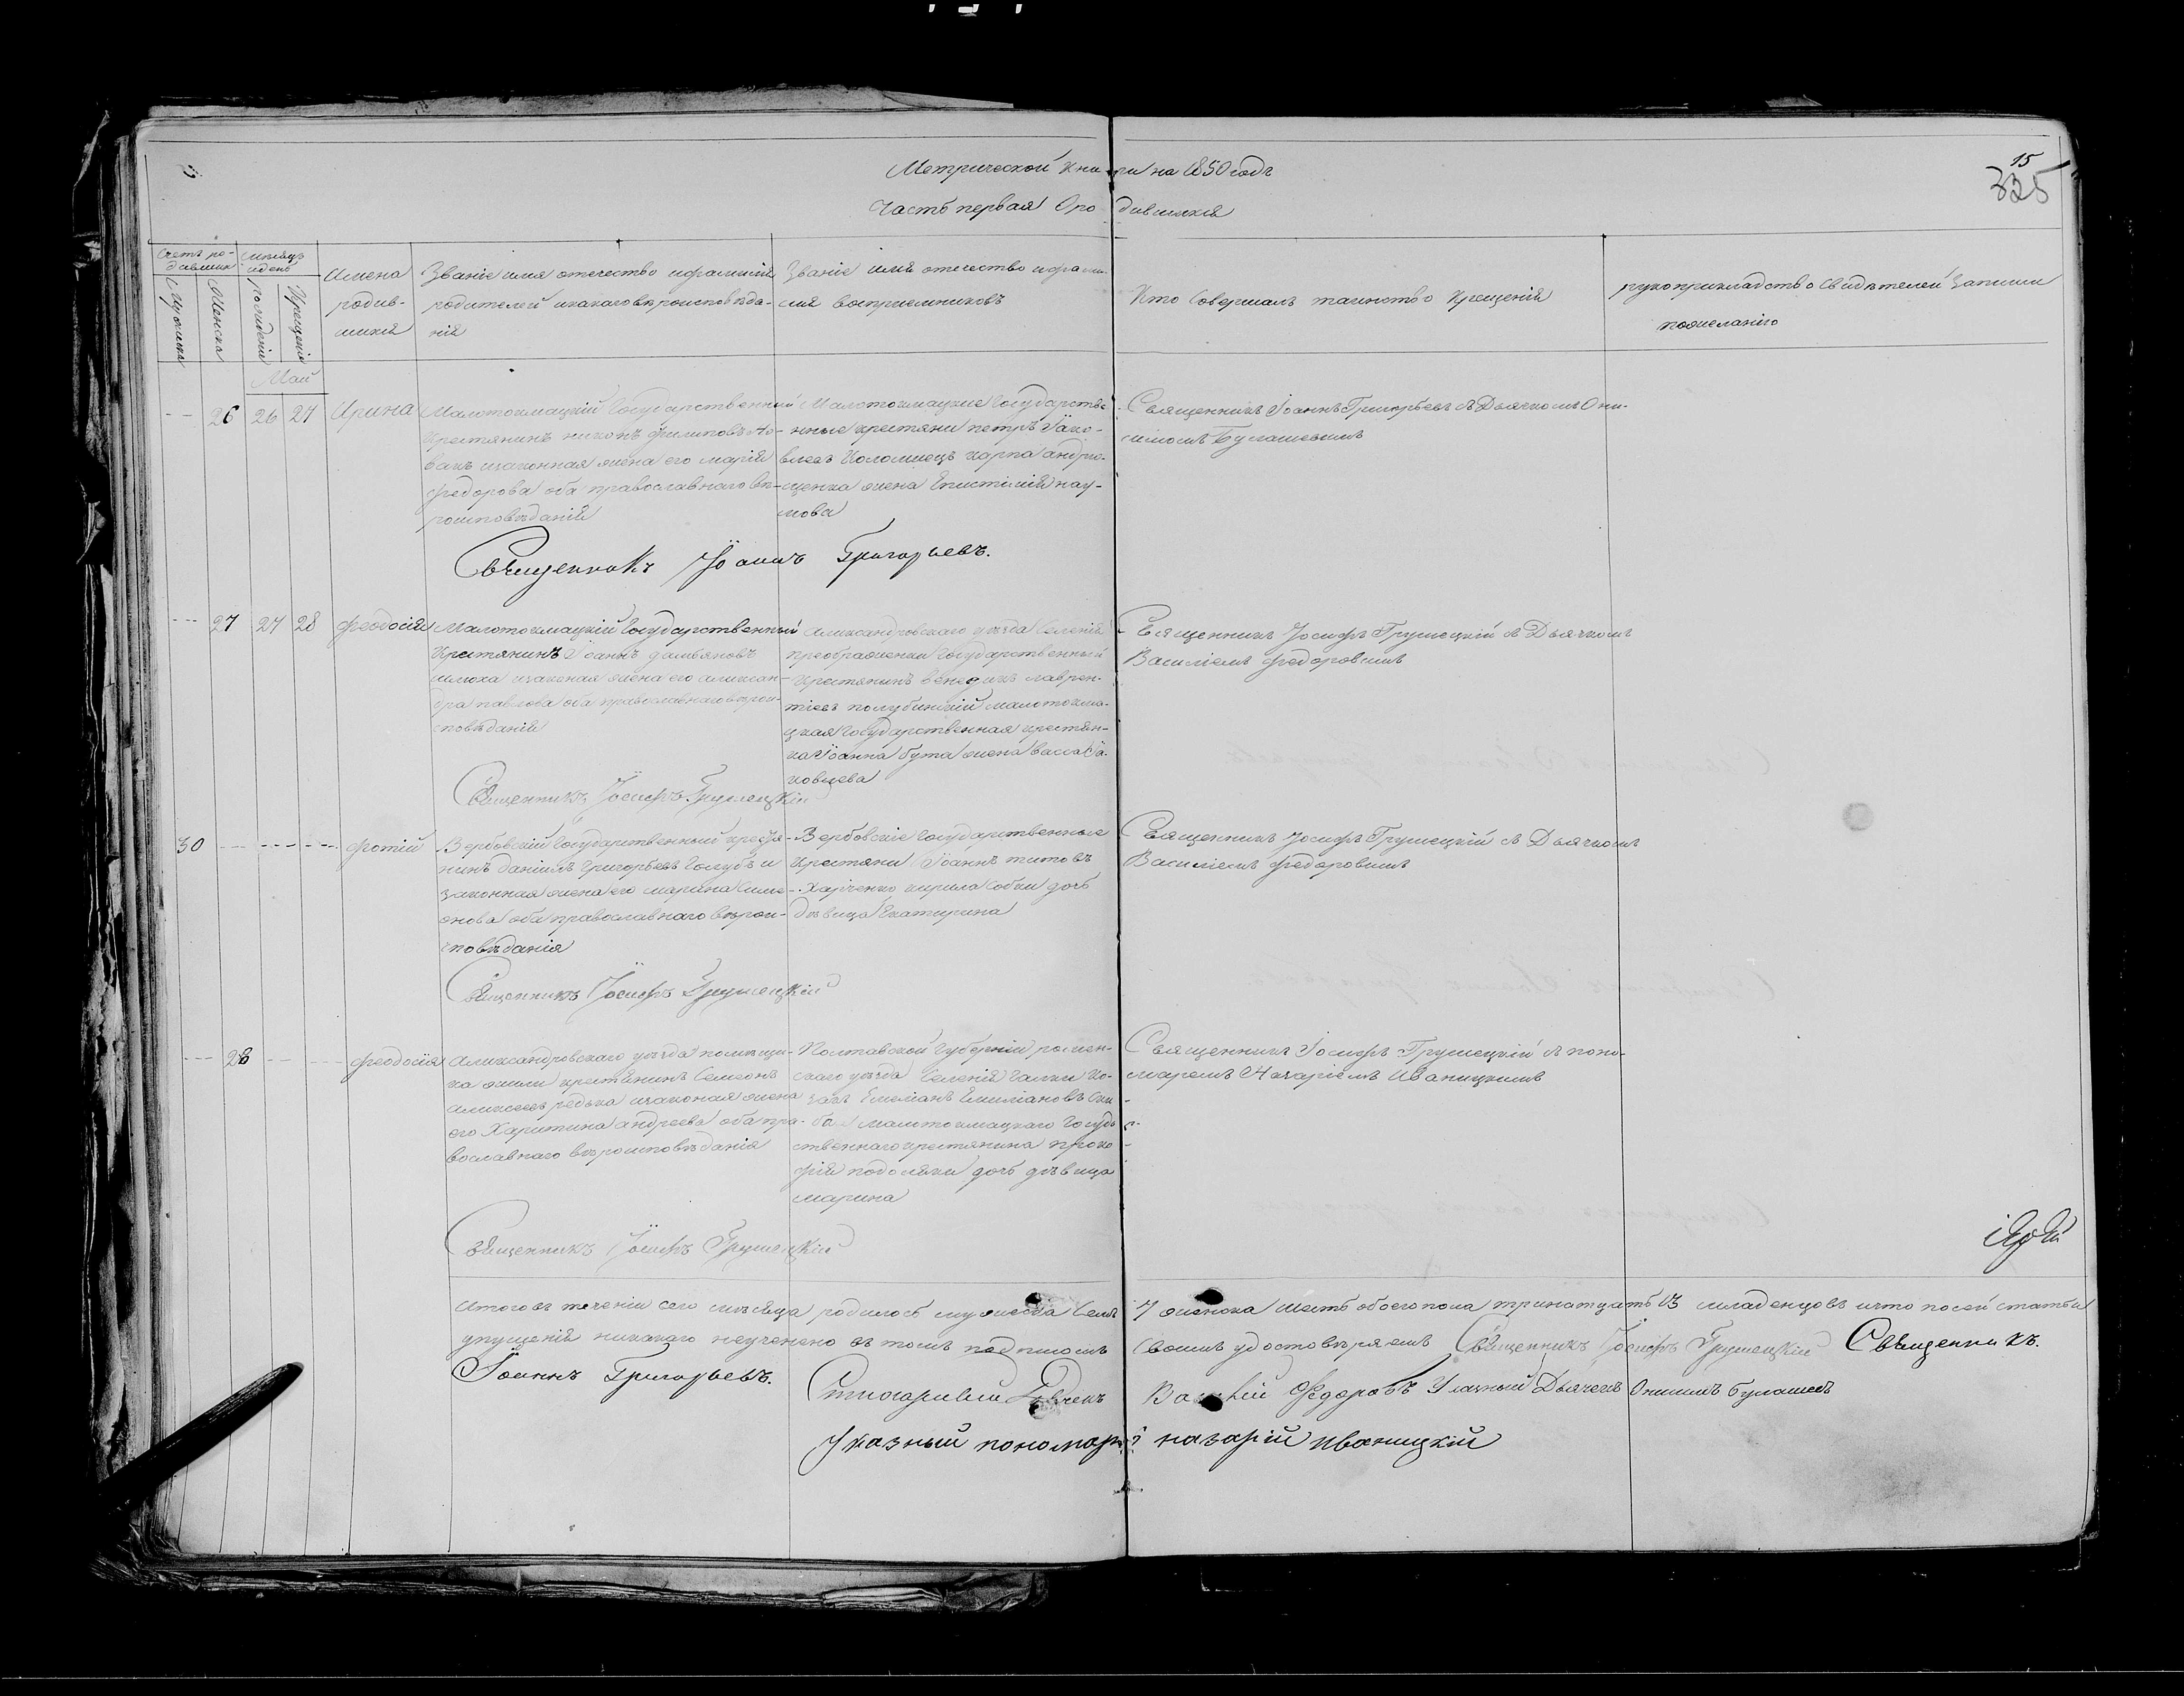 15
325
Метрической книги на 1850 годъ
Часть первая О родившихся
Счетъ ро-
дивших
мѣсяцъ
и день
Мужска
Женска
рожденія
Крещенія
Имена
родив-
шихся
Званіе имя отечество и фамилія
родителей и какаго вѣроисповѣда-
нія
Званіе имя отечество и фами-
лія восприемниковъ
Кто совершалъ таинство крещенія
рукоприкладство свидѣтелей записи
по желанію
Май
26 26 27 Ирина
Малотокмацкій Государственный
Крестянинъ никонъ филиповъ Но-
вакъ изаконная жена его марія
федорова оба православнаго вѣ-
роисповѣданія
Малотокмацкие Государстве
нные крестяни петръ Іако-
влевъ Коломиецъ карпа андрю-
щенка жена Епистимія нау-
мова
Священникъ Іоаннъ Григорьевъ съ Дьячкомъ Они-
симомъ Булашевимъ
Священникъ Іоаннъ Григорьевъ.
27 27 28 феодосія
Малотокмацкій Государственный
Крестянинъ Іоаннъ дамьяновъ
шлюха изаконая жена его алексан-
дра павлова оба православнаго вѣрои-
сповѣданія
александровскаго уѣзда Селенія
преображенки Государственный
Крестянинъ венедикъ лаврен-
тіевъ полубинскій малотокма-
цкая Государственная крестян-
ка Іоанна бута жена васса Іа-
ковлева
Священникъ Іосифъ Грушецкій съ Дьячкомъ
Василіемъ федоровимъ
Священникъ Іосифъ Грушецкій
30 фотій
Вербовскій Государственный крестя-
нинъ даніилъ григорьевъ Голубъ и
законная жена его марина Симе-
онова оба православнаго вѣрои-
сповѣданія
Вербовскіе Государственные
Крестяни Іоаннъ титовъ
Харченко кирила Собки дочь
дѣвица Екатирина
Священникъ Іосифъ Грушецкій съ Дьячкомъ
Василіемъ федоровимъ
Священникъ Іосифъ Грушецкій
28 феодосія
Александровскаго уѣзда помѣщи-
ка крестянинъ Семеонъ
алексеевъ редька изаконая жена
его Харитина андреева оба пра-
вославнаго вѣроисповѣданія
Полтавской Губерніи ромен-
скаго уѣзда Селенія Галки Ко-
закъ Емеліанъ Емиліановъ Ски
ба малотокмацкаго Госуда
ственнаго крестянина проко
фія подоляки дочь дѣвица
марина
Священникъ Іосифъ Грушецкій съ поно-
маремъ Назаріемъ Иваницкимъ
Священникъ Іосифъ Грушецкій
Итого въ теченіи сего мѣсяца родилось мужеска Семь 7 женска шесть обоего пола тринатцать 13 младенцовъ ичто посей статьи
упущенія никакаго неученено въ томъ подписомъ своимъ удостовѣряемъ Священникъ Іосифъ Грушецкій Священникъ
Іоаннъ Григорьевъ. Стихарный Дьячекъ Василій Федоровъ Указный Дьячекъ Онисимъ булашевъ
Указный пономарь назарій иваницкій